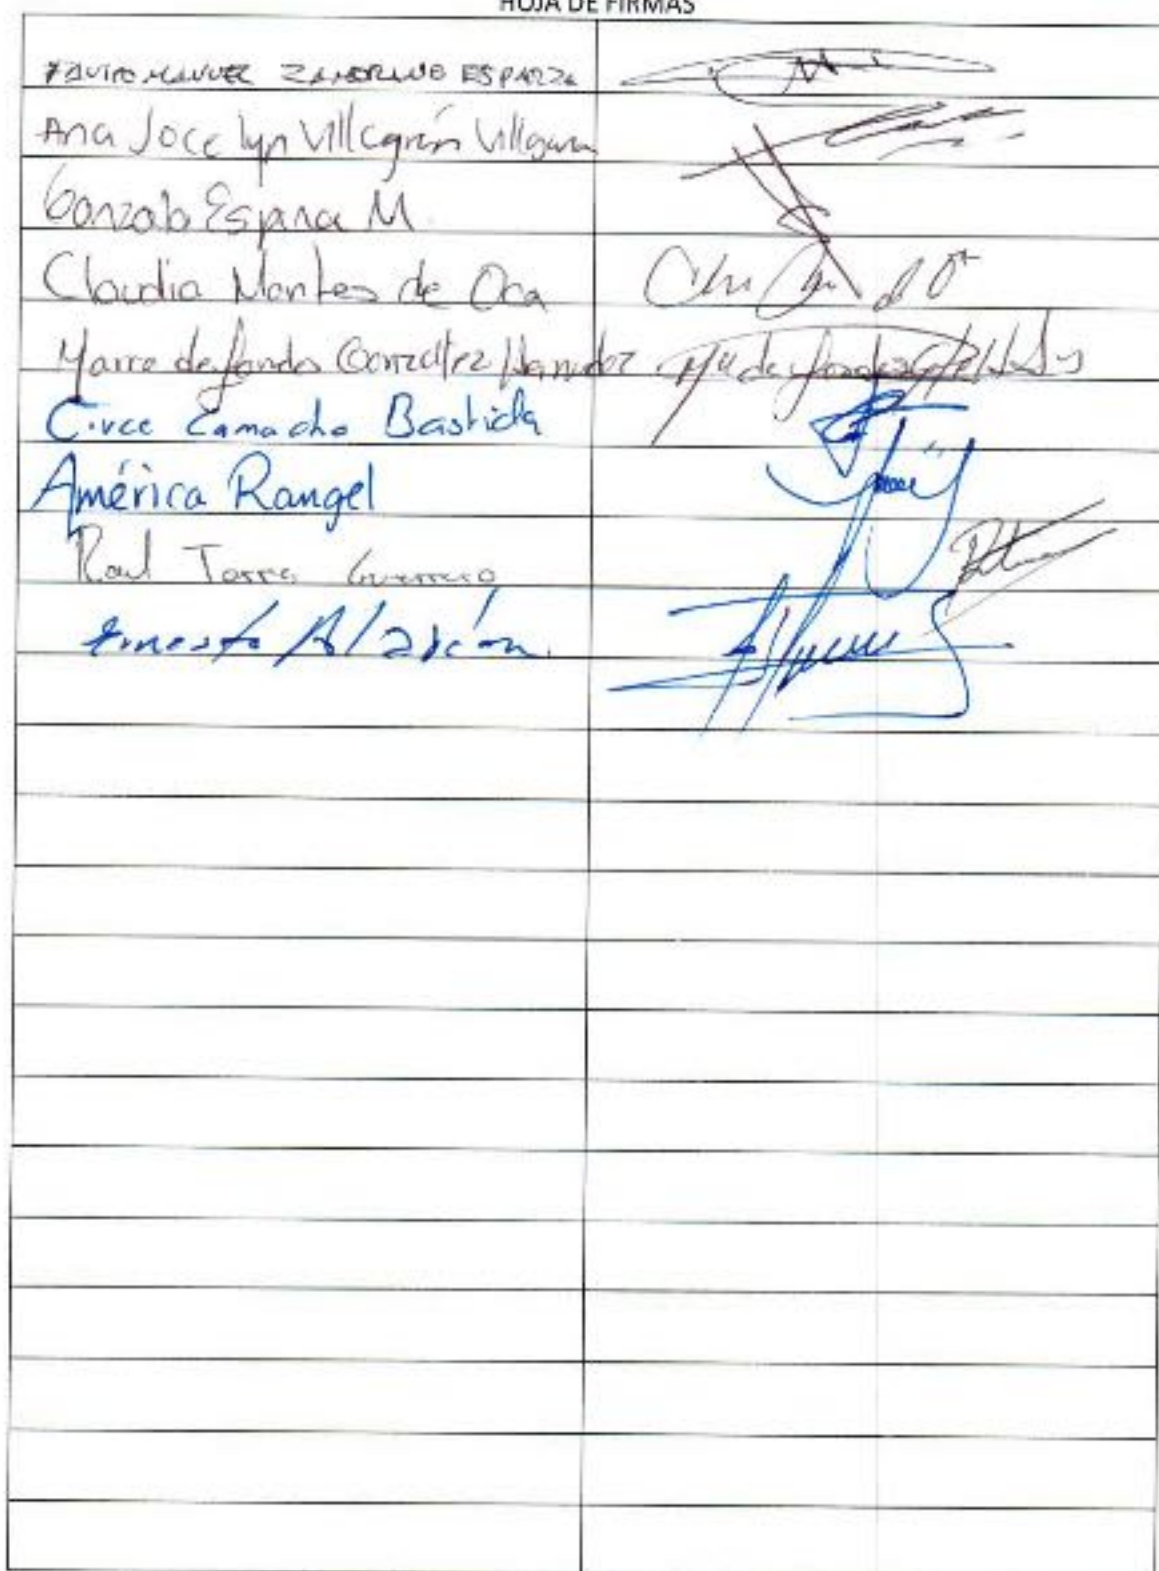 HOJA DE FIRMAS
MANUEL ZAMBRANO ESPARZA
Ana Jocelyn Villagrán Villasana
Gonzalo Espina M.
Claudia Montes de Oca
de Lourdes González Hernández
Circe Camacho Bastida
América Rangel
Raul Torres Guerrero
Ernesto Alarcón.